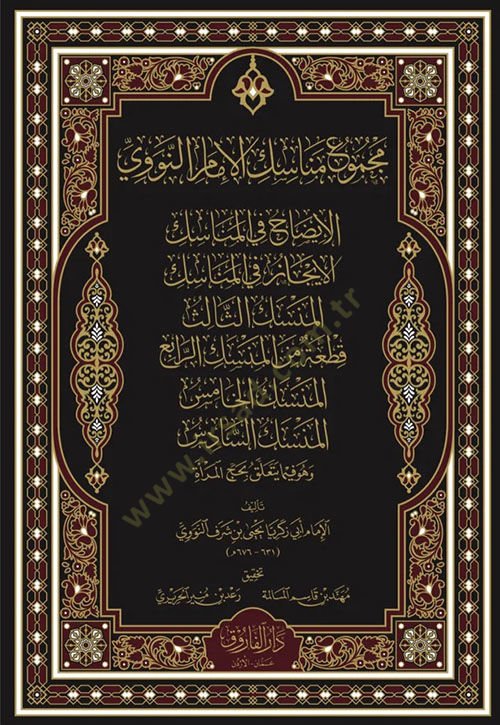 مجموع مناسك الإمام النووي
الإيضاح في المناسك
الإيجاز في المناسك
المنسك الثالث
قطعة من المنسك الرابع
المنسك الخامس
المنسك السادس
وهو فيما يتعلق بحج المرأة
تأليف
الإمام أبي زكريا يحيى بن شرف النووي
(٦٣١ - ٦٧٦ه)
تحقيق
مهند بن قاسم المسالمة رعد بن منير الحريري
دار الفاروق
عمان - الأردن